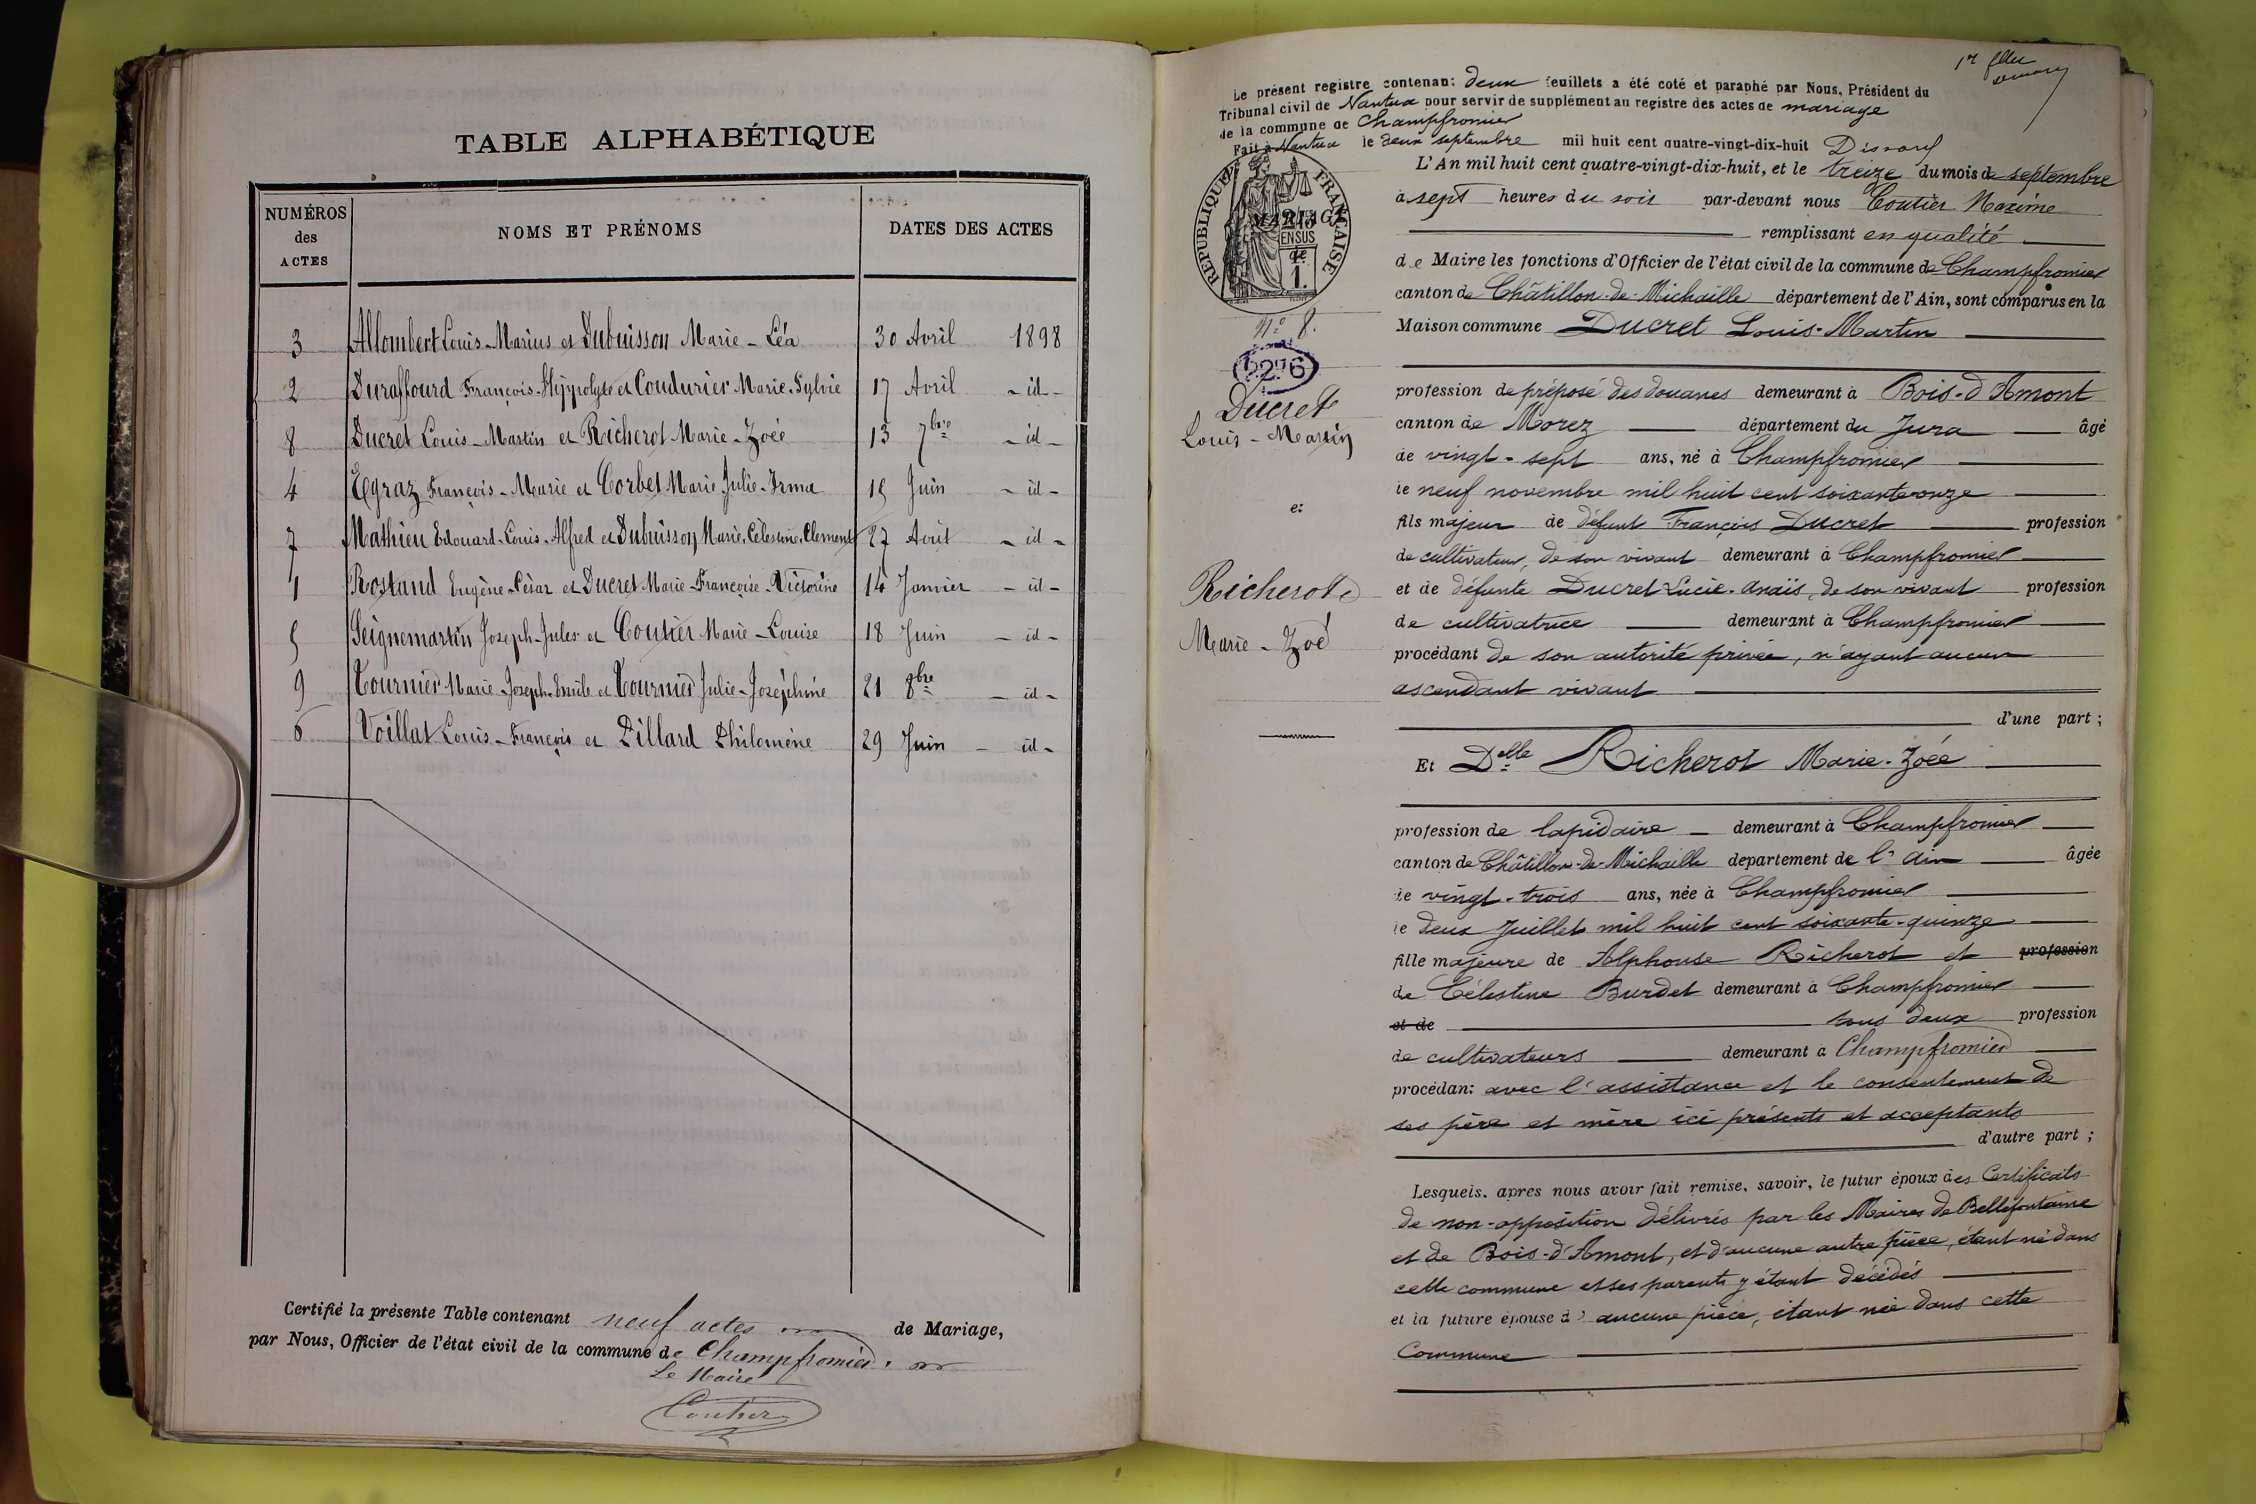 TABLE ALPHABÉTIQUE
NUMÉROS des ACTES
NOMS ET PRÉNOMS
DATES DES ACTES
3 Allombert Louis-Marius et Dubuisson Marie-Léa 30 Avril 1898
2 Duraffourd François-Hyppolyte et Coudurier Marie-Sylvie 17 Avril -id-
8 Ducret Louis-Martin et Richerot Marie-Zoée 13 7bre -id-
4 Egraz François-Marie et Corbet Marie Julie-Irma 15 Juin -id-
7 Mathieu Edouard-Louis-Alfred et Dubuisson Marie-Célestine-Clement 27 Août -id-
1 Rostand Eugène-César et Ducret Marie-Françoise-Victorine 14 Janvier -id-
5 Seignemartin Joseph-Jules et Coutier Marie-Louise 18 Juin -id-
9 Tournier Marie-Joseph-Emile et Tournier Julie-Joséphine 21 8bre -id-
6 Voillat Louis-François et Pillard Philomène 29 Juin -id-
Certifié la présente Table contenant neuf actes de Mariage,
par Nous, Officier de l'état civil de la commune de Champfromier.
Le Maire
Coutier
Le présent registre contenant deux feuillets a été coté et paraphé par Nous, Président du
Tribunal civil de Nantua pour servir de supplément au registre des actes de mariage
de la commune de Champfromier
Fait à Nantua le deux septembre mil huit cent quatre-vingt-dix-huit
RÉPUBLIQUE FRANÇAISE
MARIAGE
N° 8.
Ducret
Louis-Martin
et
Richerot
Marie-Zoé
L'An mil huit cent quatre-vingt-dix-huit, et le treize du mois de septembre
à sept heures du soir par-devant nous Coutier Maxime
remplissant en qualité
de Maire les fonctions d'Officier de l'état civil de la commune de Champfromier
canton de Châtillon-de-Michaille département de l'Ain, sont comparus en la
Maison commune Ducret Louis-Martin
profession de préposé des douanes demeurant à Bois-d'Amont
canton de Morez département du Jura âgé
de vingt-sept ans, né à Champfromier
le neuf novembre mil huit cent soixante onze
fils majeur de défunt François Ducret profession
de cultivateur, de son vivant demeurant à Champfromier
et de défunte Ducret Lucie-Anaïs, de son vivant profession
de cultivatrice demeurant à Champfromier
procédant de son autorité privée, n'ayant aucun
ascendant vivant
d'une part ;
Et Delle Richerot Marie-Zoée
profession de lapidaire demeurant à Champfromier
canton de Châtillon-de-Michaille département de l'Ain âgée
de vingt-trois ans, née à Champfromier
le deux Juillet mil huit cent soixante-quinze
fille majeure de Alphonse Richerot et profession
de Célestine Burdet demeurant à Champfromier
et de tous deux profession
de cultivateurs demeurant à Champfromier
procédant avec l'assistance et le consentement de
ses père et mère ici présents et acceptants
d'autre part ;
Lesquels, après nous avoir fait remise, savoir, le futur époux des Certificats
de non-opposition délivrés par les Maires de Bellefontaine
et de Bois-d'Amont, et d'aucune autre pièce, étant né dans
cette commune et ses parents y étant décédés
et la future épouse d'aucune pièce, étant née dans cette
Commune